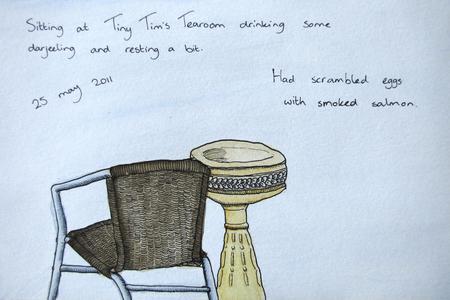 Sitting at Tiny Tim's Tearoom drinking some
darjeeling and resting a bit.
25 may 2011
Had scrambled eggs
with smoked salmon.